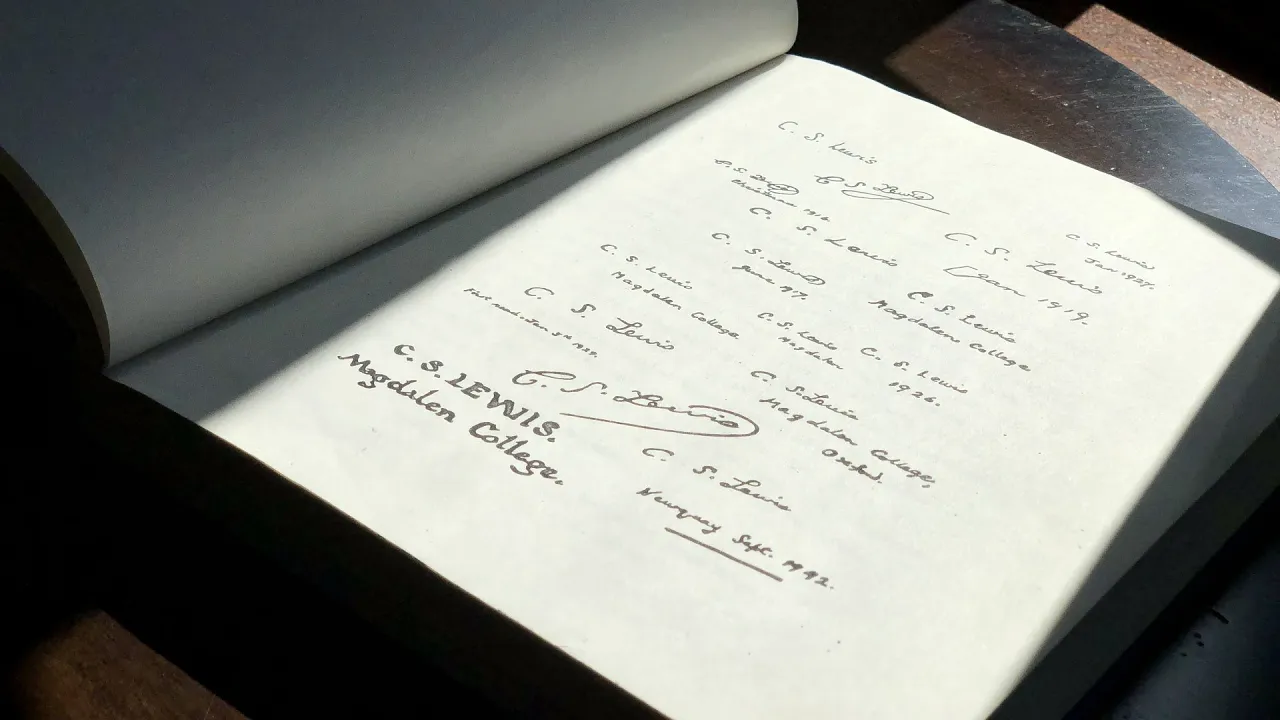 C. S. Lewis
C. S. Lewis
C. S. Lewis
Christmas
C. S. Lewis
C. S. Lewis
Jan. 1927.
C. S. Lewis
Jan 1919.
C. S. Lewis
June 1917.
C. S. Lewis
Magdalen College
C. S. Lewis
Magdalen College
C. S. Lewis
Magdalen
C. S. Lewis
1926.
C. S. Lewis
C. S. Lewis
Magdalen College,
Oxford.
C. S. LEWIS.
Magdalen College.
C. S. Lewis
C. S. Lewis
Newquay Sept. 1942.